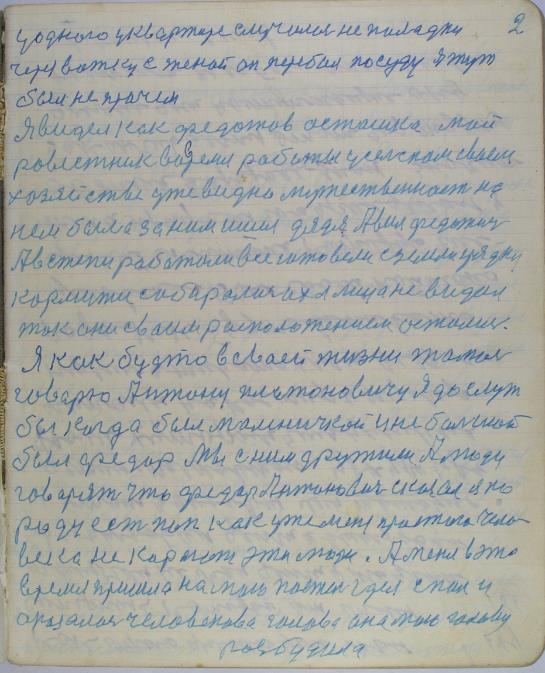 2
у одного уквартире случился не паладки
через вожжу с женой он перебол посуду Я тут
был не причем
Я видел как федотов осташка мой
ровестник вовремя работы усельском своем
хозяйстве уже видно мужественност на
нем была за ним ишол дядя Авил федотыч
Автепи работали все готовели
кормити собирались их я лица не видал
так они сваим расположением осталис.
Я как будто в своей жизни
говарю Антону платоновичу Я до служ
бы когда был малничкой и не болшой
был федор Мы с ним дружили А люди
говарят что федор Антонович сказал я по
роду ест поп как уже меня простого чело
века не кормят эти люди. А меня в это
время пришла на мою постел где я спал и
человекова голова она мою голову
розбудила